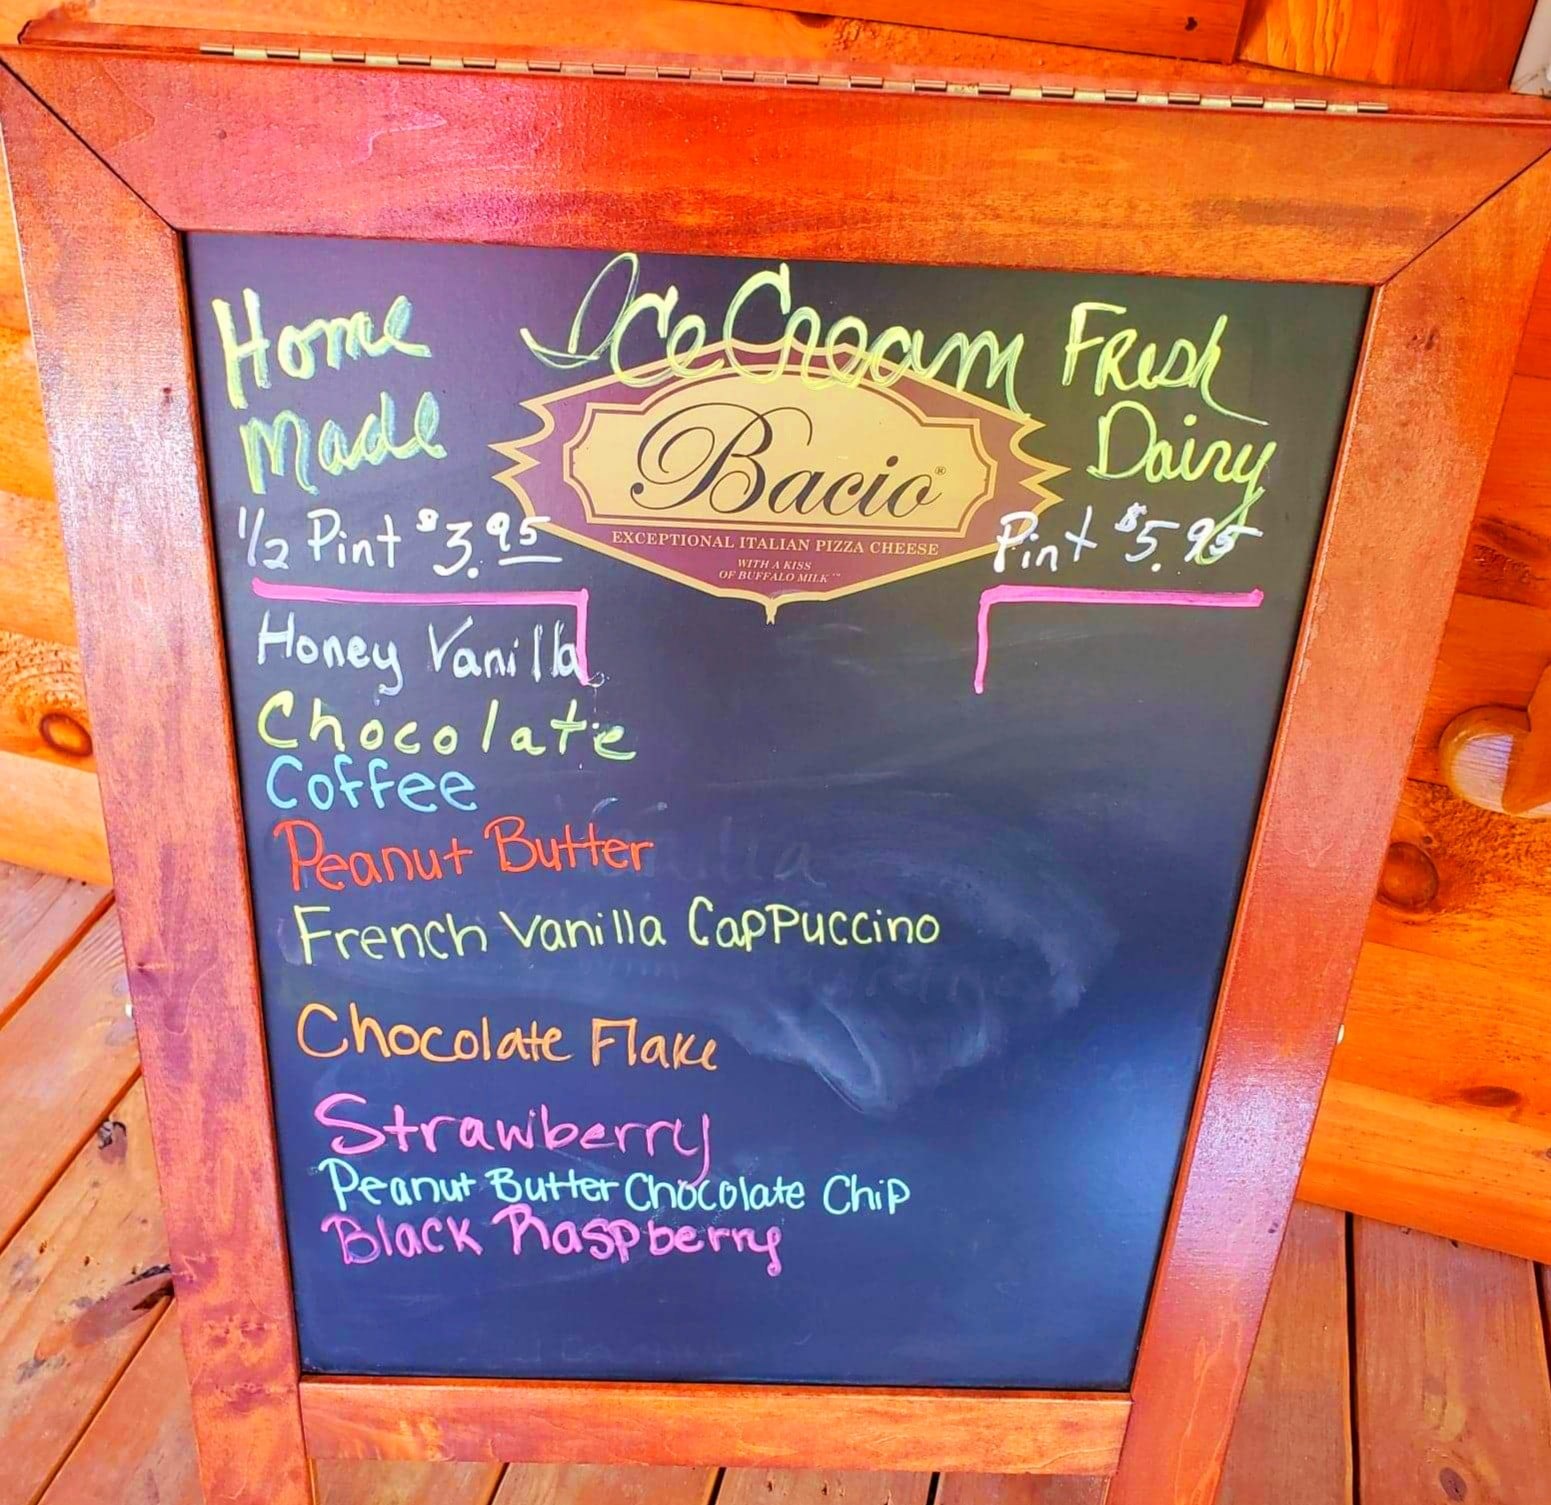 Home Ice Cream Fresh
made Dairy
Bacio®
1/2 Pint $3.95 Pint $5.95
EXCEPTIONAL ITALIAN PIZZA CHEESE
WITH A KISS
OF BUFFALO MILK™
Honey Vanilla
Chocolate
Coffee
Peanut Butter
French Vanilla Cappuccino
Chocolate Flake
Strawberry
Peanut Butter Chocolate Chip
Black Raspberry